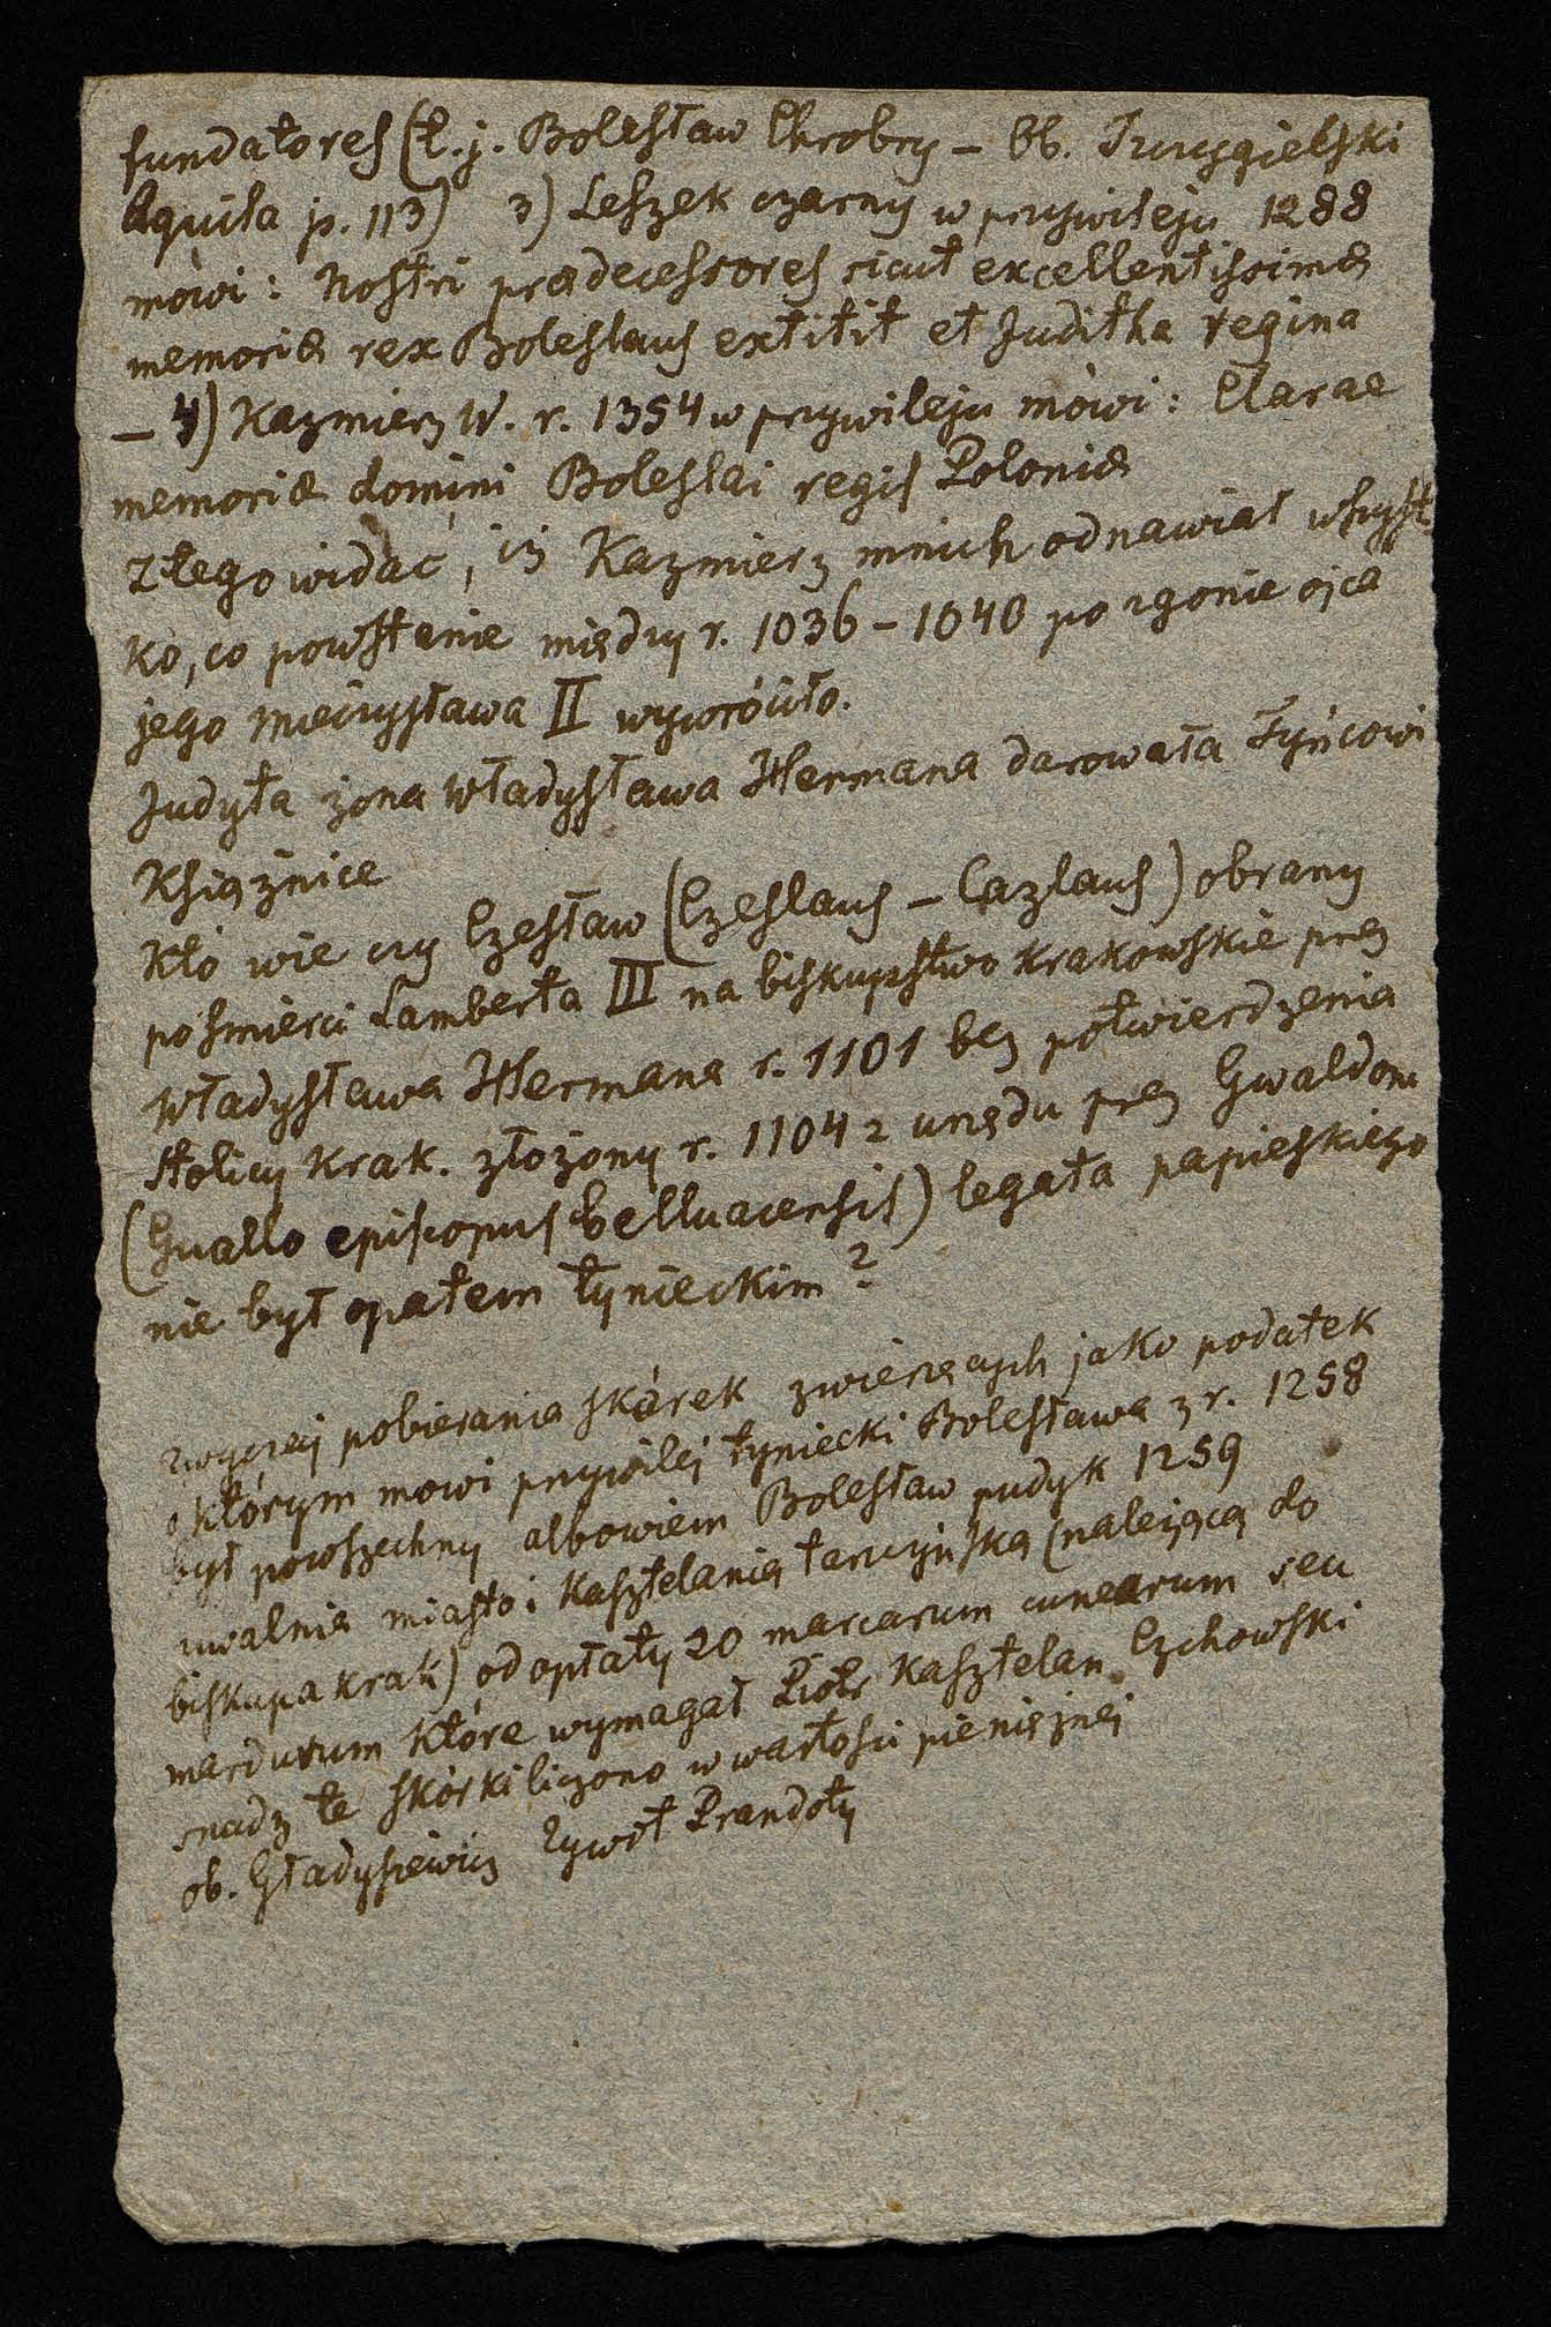 fundatores (t.j. Bolesław Chrobry – Ob. Szczygielski
Aquila p. 113) 3) Leszek czarny w przywileju 1288
mówi: Nostri prædecessores sicut excellentissimæ
memoriæ rex Boleslaus extitit et Juditha regina
– 4) Kazmierz W. r. 1354 w przywileju mówi: Clarae
memoriæ domini Boleslai regis Poloniæ
Z tego widać, iż Kazmierz mnich odnawiał wszyst
ko, co powstanie między r. 1036 – 1040 po zgonie ojca
jego Mieczysława II wywróciło.
Judyta żona Władysława Hermana darowała Tyńcowi
Książnice
Kto wie czy Czesław (Czeslaus – Cazlaus) obrany
po śmierci Lamberta III na biskupstwo krakowskie przez
Władysława Hermana r. 1101 bez potwierdzenia
stolicy krak. złożony r. 1104 z urzędu przez Gwaldona
(Guallo episcopus belluacensis) legata papieskiego
nie był opatem tynieckim?
zwyczaj pobierania skórek zwierzęcych jako podatek
o którym mowi przywilej tyniecki Bolesława z r. 1258
był powszechny albowiem Bolesław pudyk 1259
uwalnia miasto i Kasztelanią tarczyńską (należącą do
biskupa krak) od opłaty 20 marcarum cunearum seu
mardurum które wymagał Piotr Kasztelan Czchowski
snadz te skórki liczono w wartości pieniężnej
ob. Gładyszewicz Zywot Prandoty